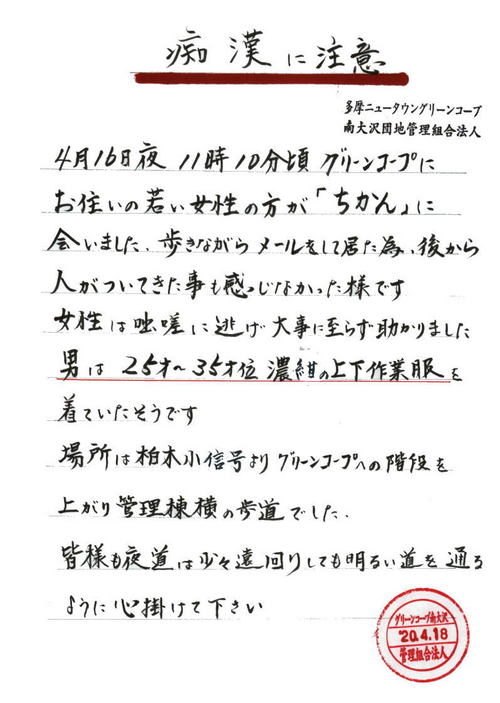 痴漢に注意
多摩ニュータウングリーンコープ
南大沢団地管理組合法人
4月16日夜 11時10分頃 グリーンコープに
お住いの若い女性の方が「ちかん」に
会いました、歩きながらメールをして居た為、後から
人がついてきた事も感じなかった様です
女性は咄嗟に逃げ大事に至らず助かりました
男は 25才〜35才位 濃紺の上下作業服を
着ていたそうです
場所は柏木小信号よりグリーンコープへの階段を
上がり管理棟横の歩道でした、
皆様も夜道は少々遠回りしても明るい道を通る
ように心掛けて下さい
グリーンコープ南大沢
'20.4.18
管理組合法人